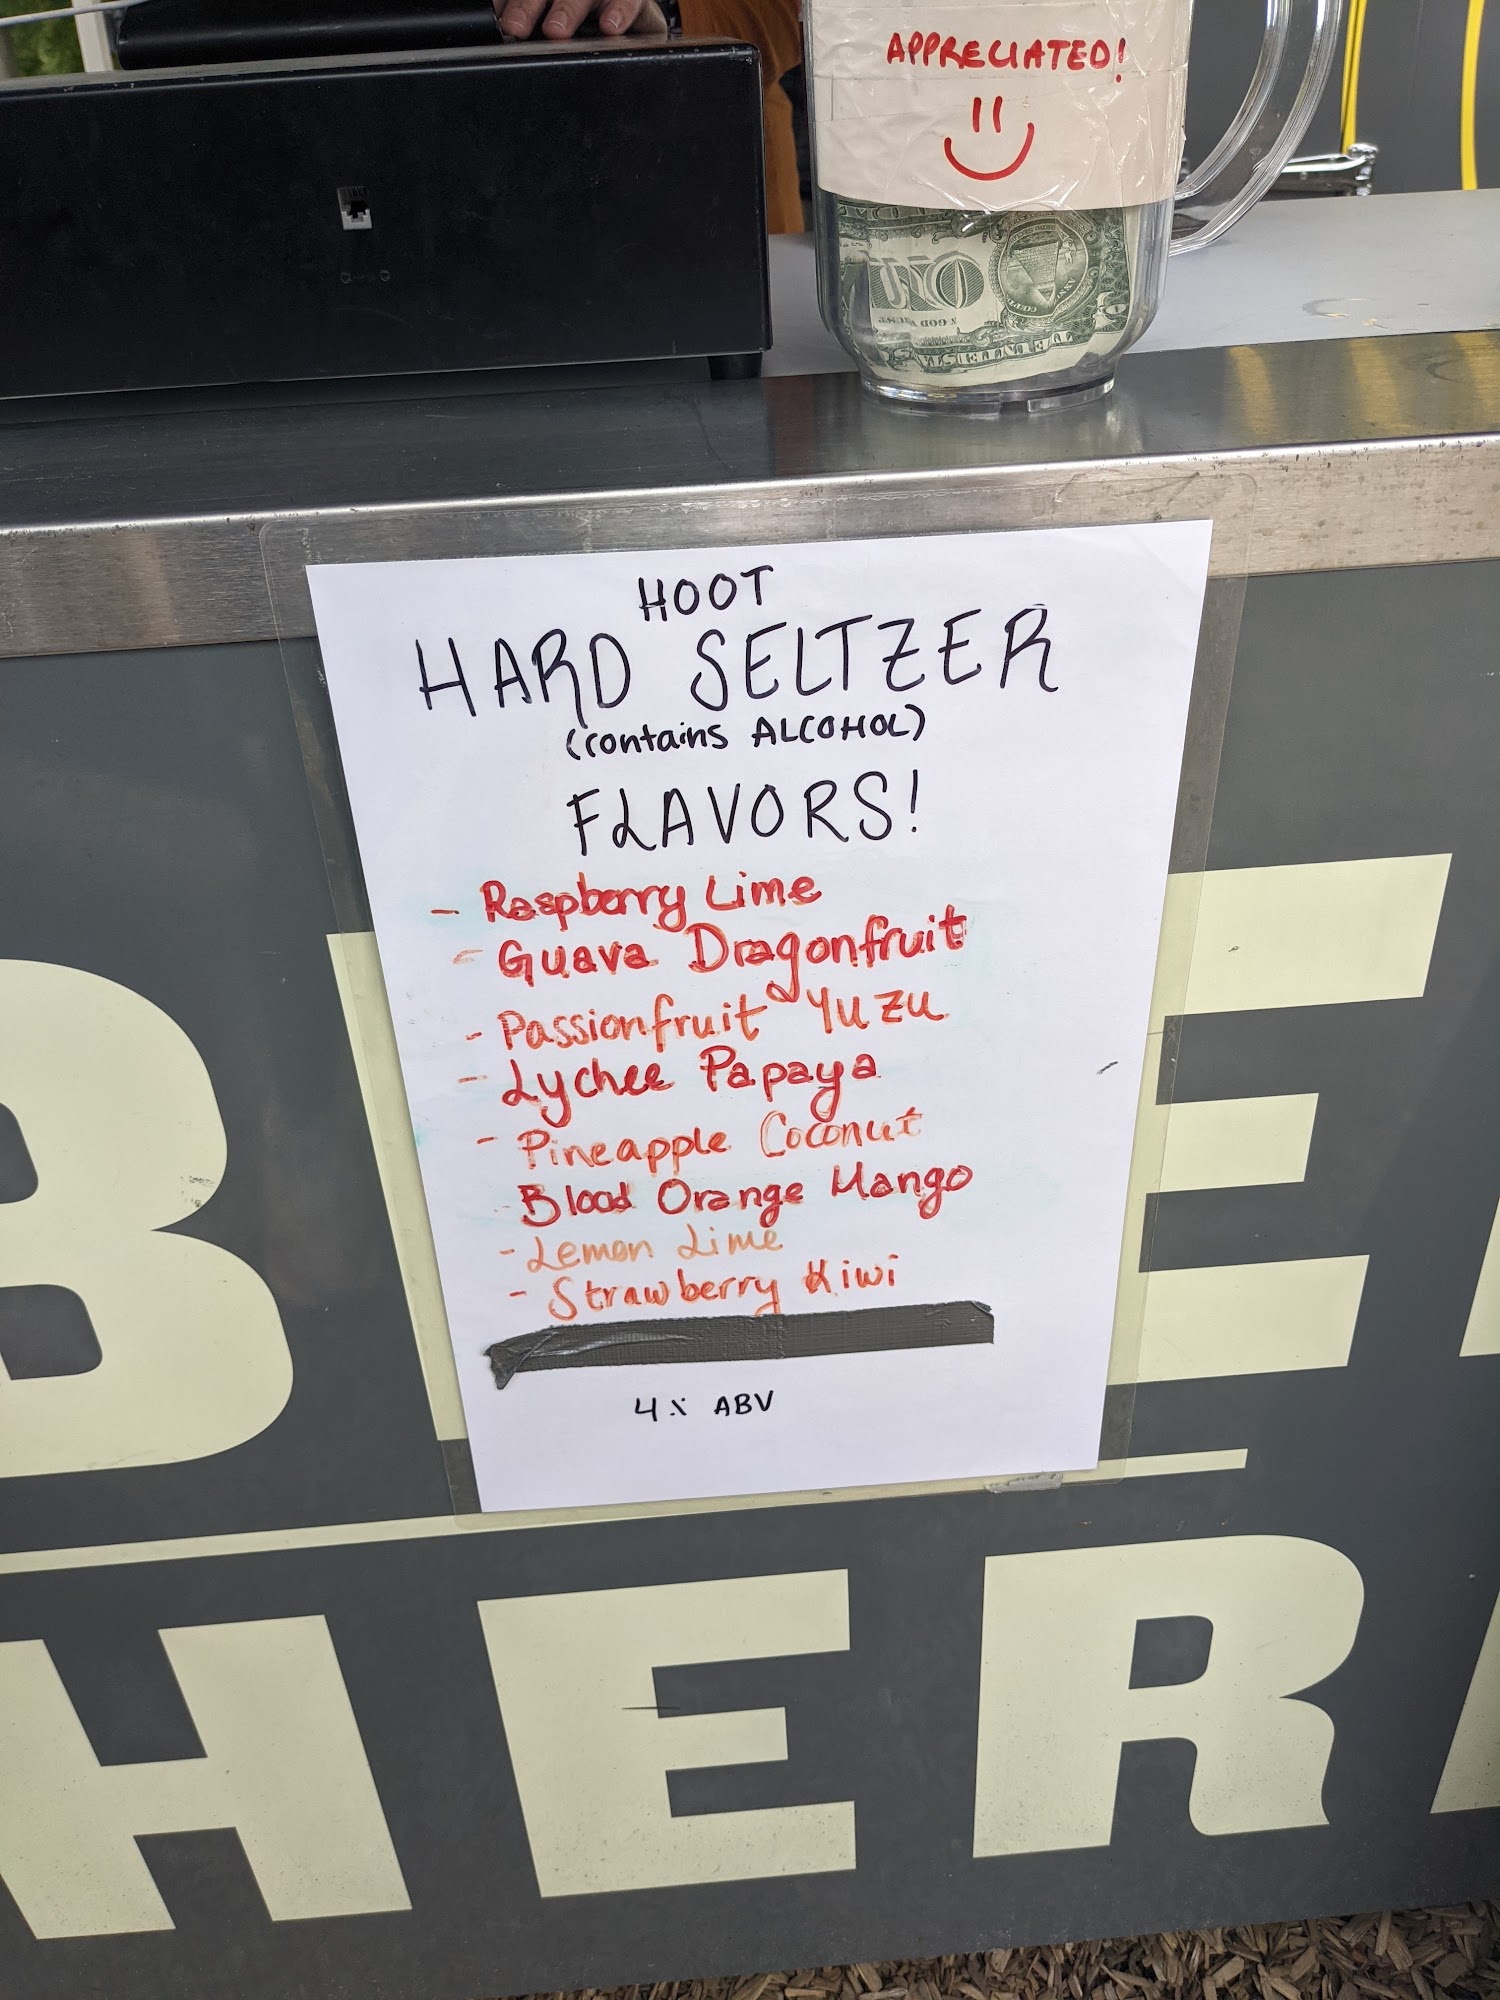 APPRECIATED!
HOOT
HARD SELTZER
(contains ALCOHOL)
FLAVORS!
- Raspberry Lime
- Guava Dragonfruit
- Passionfruit Yuzu
- Lychee Papaya
- Pineapple Coconut
Blood Orange Mango
- Lemon Lime
- Strawberry Kiwi
4% ABV
B E
HER